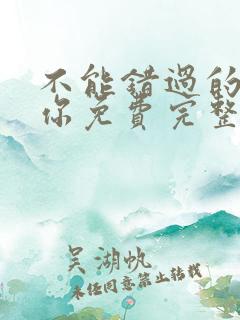 不能錯過的
你免費完整
吴湖帆
未经同意禁止转载